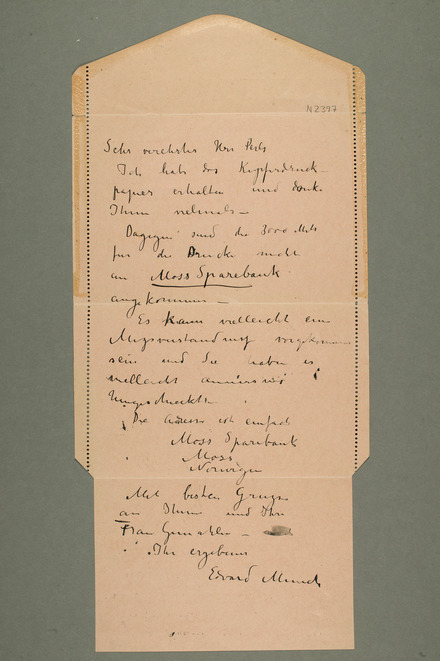 N 2397
Sehr verehrter Herr Perls
Ich hab das Kupferdruck-
papier erhalten und danke
Ihnen vielmals –
Dagegen sind die 3000 Mk
für die Drucke nicht
an Moss Sparebank
angekommen –
Es kann vielleicht ein
Missverständniss vorgekommen
sein und Sie haben es
vielleicht anderswo
hingeschickt
Die Adresse ist einfach
Moss Sparebank
Moss
Norwegen
Mit besten Gruss
an Ihnen und Ihr
Frau Gemahlin –
Ihr ergebener
Edvard Munch